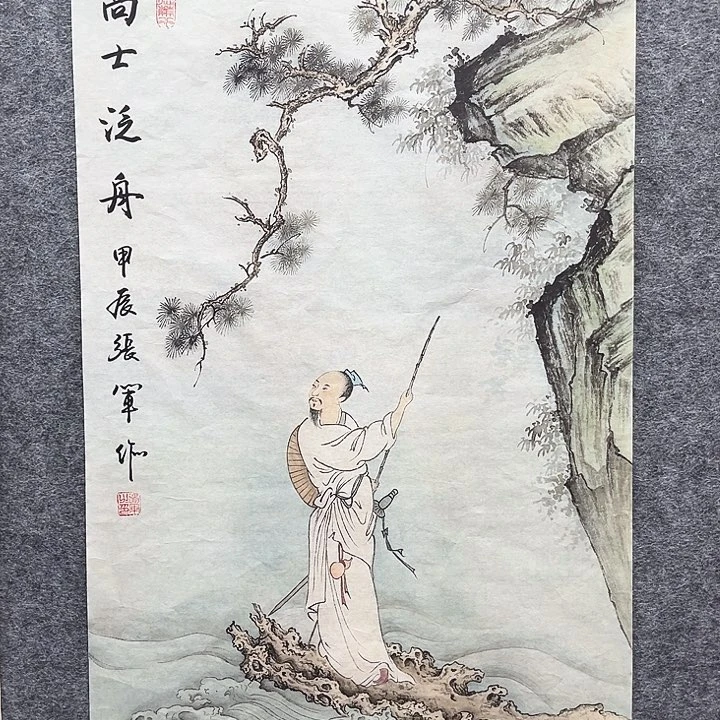 高士泛舟甲辰張軍作